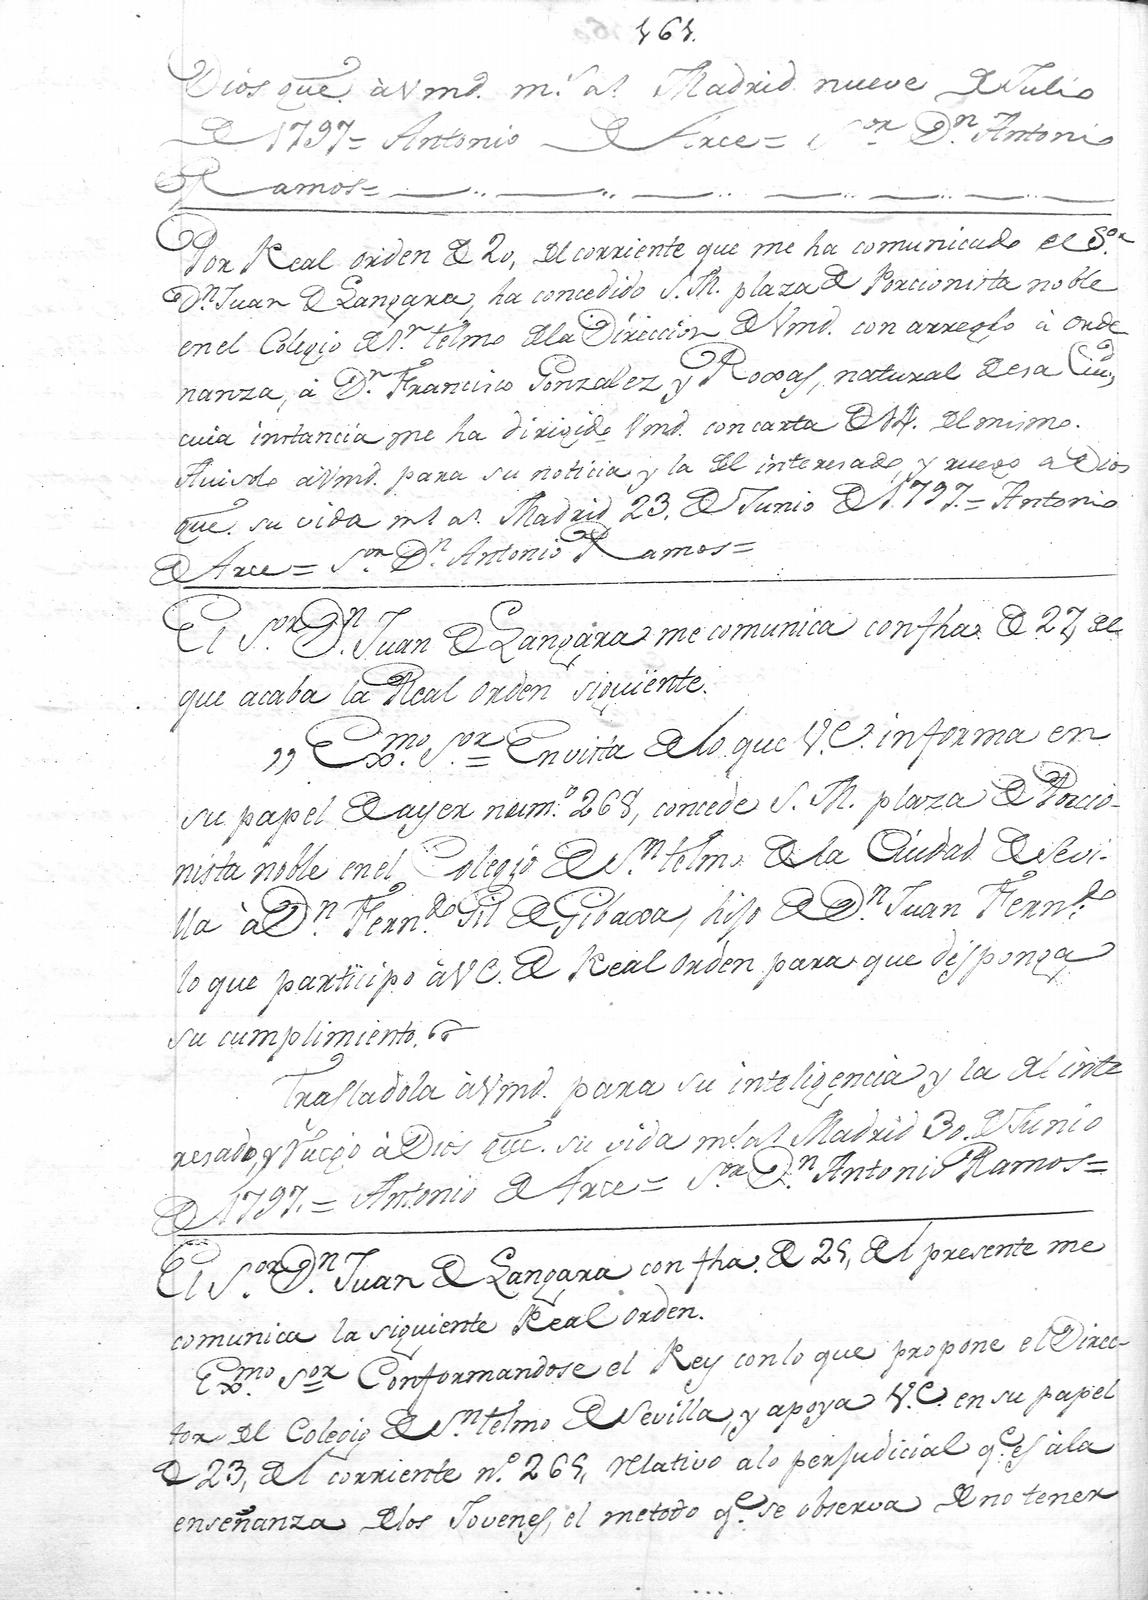 161.
Dios gue. à Vmd. ms. as. Madrid nueve de Julio
de 1797= Antonio de Arce= Sor. Dn. Antonio
Ramos=
Por Real orden de 20, del corriente que me ha comunicado el Sor.
Dn. Juan de Langara, ha concedido S. M. plaza de Porcionista noble
en el Colegio de Sn. telmo de la Direccion de Vmd. con arreglo à orde
nanza, à Dn. Francisco Gonzalez y Roxas, natural de esa Ciud.
cuia instancia me ha dirigido Vmd. con carta de 14. del mismo.
Avisolo à Vmd. para su noticia y la del interesado, y ruego a Dios
gue. su vida ms. as. Madrid 23. de Junio de 1797.= Antonio
de Arce= Sor. Dn. Antonio Ramos=
El Sor. Dn. Juan de Langara me comunica con fha. de 27, del
que acaba la Real orden siguiente.
,, Exmo. Sor.= En vista de lo que V. E. informa en
su papel de ayer num.o 268, concede S. M. plaza de Porcio-
nista noble en el Colegio de Sn. telmo de la Ciudad de Sevi-
lla à Dn. Fern.do Gil de Gibaxa, hijo de Dn. Juan Fern.do
lo que participo à V E. de Real orden para que disponga
su cumplimiento.
Trasladola à Vmd. para su inteligencia y la del inte
resado, y ruego à Dios gue. su vida ms. as. Madrid 30. de Junio
de 1797.= Antonio de Arce= Sor. Dn. Antonio Ramos=
El Sor. Dn. Juan de Langara con fha. de 25, del presente me
comunica la siguiente Real orden.
Exmo. Sor= Conformandose el Rey con lo que propone el Direc-
tor del Colegio de Sn. telmo de Sevilla, y apoya V. E. en su papel
de 23, del corriente n.o 265, relativo a lo perjudicial qe. es à la
enseñanza de los Jovenes, el metodo qe. se observa de no tener